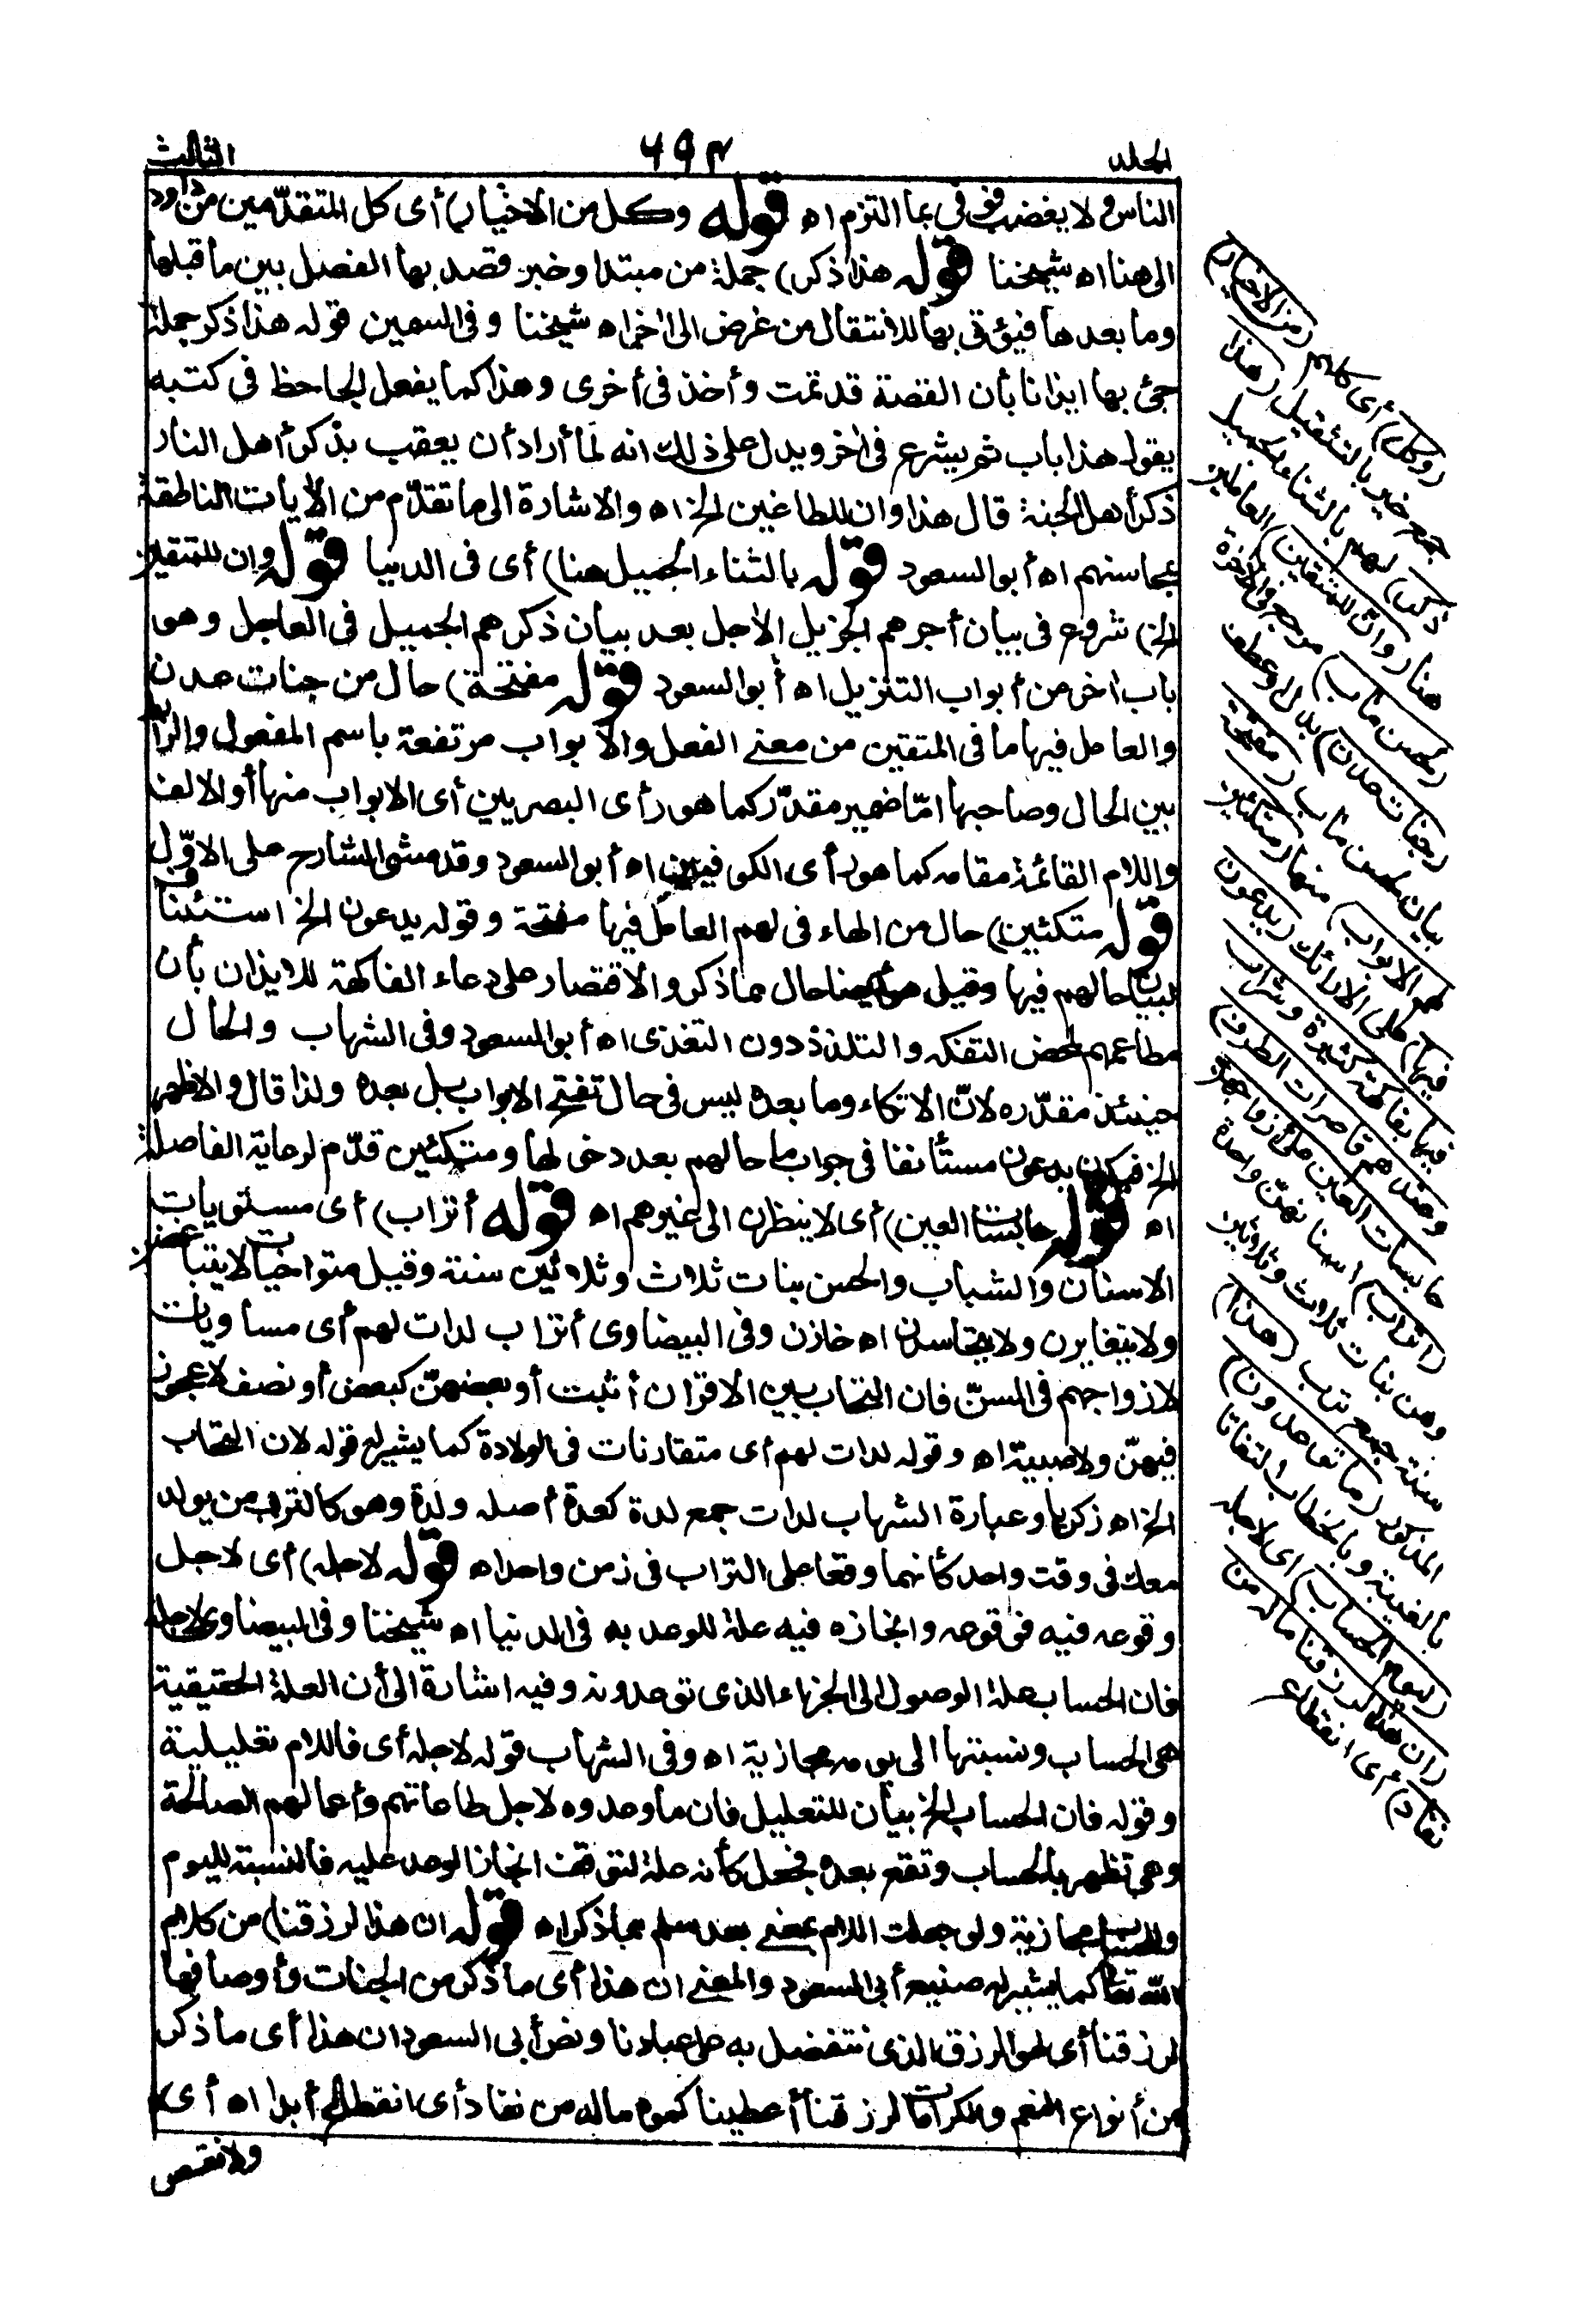 المجلد
٦٩٣
الثالث
الناس ولا يغضب فوفى بما التزم اه قوله وكل من الاخيار) أى كل المتقدّمين من داود
الى هنا اه شيخنا قوله هذا ذكر) جملة من مبتدا وخبر قصد بها الفصل بين ما قبلها
وما بعدها فيؤتى بها للانتقال من غرض الى اخر اه شيخنا وفى السمين قوله هذا ذكر جملة
جئ بها ايذانا بأن القصة قد تمت وأخذ فى أخرى وهذا كما يفعل الجاحظ فى كتبه
يقول هذا باب ثم يشرع فى اخر ويدل على ذلك انه لما أراد أن يعقب بذكر أهل النار
ذكر أهل الجنة قال هذا وان للطاغين الخ اه والاشارة الى ما تقدّم من الايات الناطقة
بمحاسنهم اه أبو السعود قوله بالثناء الجميل هنا) أى فى الدنيا قوله وان للمتقين
الخ) شروع فى بيان أجرهم الجزيل الاجل بعد بيان ذكرهم الجميل فى العاجل وهو
باب اخر من أبواب التنزيل اه أبو السعود قوله مفتحة) حال من جنات عدن
والعامل فيها ما فى المتقين من معنى الفعل والابواب مرتفعة باسم المفعول والرابط
بين الحال وصاحبها امّا ضمير مقدّر كما هو رأى البصريين أى الابواب منها أو الالف
واللام القائمة مقامه كما هو رأى الكوفيين اه أبو السعود وقد مشى الشارح على الاوّل
قوله متكئين) حال من الهاء فى لهم العامل فيها مفتحة وقوله يدعون الخ استئناف
لبيان حالهم فيها وقيل هو أيضا حال مما ذكر والاقتصار على دعاء الفاكهة للايذان بأن
مطاعمهم لمحض التفكه والتلذذ دون التغذى اه أبو السعود وفى الشهاب والحال
حينئذ مقدّره لانّ الاتكاء وما بعده ليس فى حال تفتح الابواب بل بعده ولذا قال والاظهر
الخ فيكون يدعون مستأنفا فى جواب ما حالهم بعد دخولها ومتكئين قدّم لرعاية الفاصلة
اه قوله حابسات العين) أى لا ينظرن الى غيرهم اه قوله أتراب) أى مستويات
الاسنان والشباب والحسن بنات ثلاث وثلاثين سنة وقيل متواخيات لا يتباغضن
ولا يتغايرن ولا يتحاسدن اه خازن وفى البيضاوى أتراب لدات لهم أى مساويات
لازواجهم فى السنّ فان التحاب بين الاقران أثبت أو بعضهنّ كبعض أو نصف لا عجوز
فيهنّ ولا صبية اه وقوله لدات لهم أى متقارنات فى الولادة كما يشير له قوله لان التحاب
الخ اه زكريا وعبارة الشهاب لدات جمع لدة كعدة أصله ولدة وهو كالترب من يولد
معك فى وقت واحد كأنهما وقعا على التراب فى زمن واحد اه قوله لاجله) أى لاجل
وقوعه فيه فوقوعه وانجازه فيه علة للوعد به فى الدنيا اه شيخنا وفى البيضاوى لاجله
فان الحساب علة الوصول الى الجزاء الذى توعدونه وفيه اشارة الى أن العلة الحقيقية
هى الحساب ونسبتها الى يومه مجازية اه وفى الشهاب قوله لاجله أى فاللام تعليلية
وقوله فان الحساب الخ بيان للتعليل فان ما وعدوه لاجل طاعاتهم وأعمالهم الصالحة
وهى تظهر بالحساب وتقع بعده فجعل كأنه علة لتوقف انجاز الوعد عليه فالنسبة لليوم
والحساب مجازية ولو جعلت اللام بمعنى بعد سلم مما ذكر اه قوله ان هذا لرزقنا) من كلام
الله تعالى كما يشير له صنيع أبى السعود والمعنى ان هذا أى ما ذكر من الجنات وأوصافها
لرزقنا أى لهو الرزق الذى نتفضل به على عبادنا ونص أبى السعود ان هذا أى ما ذكر
من أنواع النعم والكرامات لرزقنا أعطيناكموه ماله من نفاد أى انقطاع أبدا اه أى
ولا نقص
(وكل) أى كلهم (من الاخيار)
جمع خير بالتثقيل (هذا
ذكر) لهم بالثناء الجميل
هنا (وان للمتقين) العاملين
(لحسن ماب) مرجع فى الاخرة
(جنات عدن) بدل أو عطف
بيان لحسن ماب (مفتحة
لهم الابواب) منها (متكئين
فيها) على الارائك (يدعون
فيها بفاكهة كثيرة وشراب
وعندهم قاصرات الطرف)
حابسات العين على أزواجهن
(أتراب) أسنانهنّ واحدة
وهن بنات ثلاث وثلاثين
سنة جمع ترب (هذا)
المذكور (ما توعدون)
بالغيبة وبالخطاب التفاتا
(ليوم الحساب) أى لاجله
(ان هذا لرزقنا ماله من
نفاد) أى انقطاع